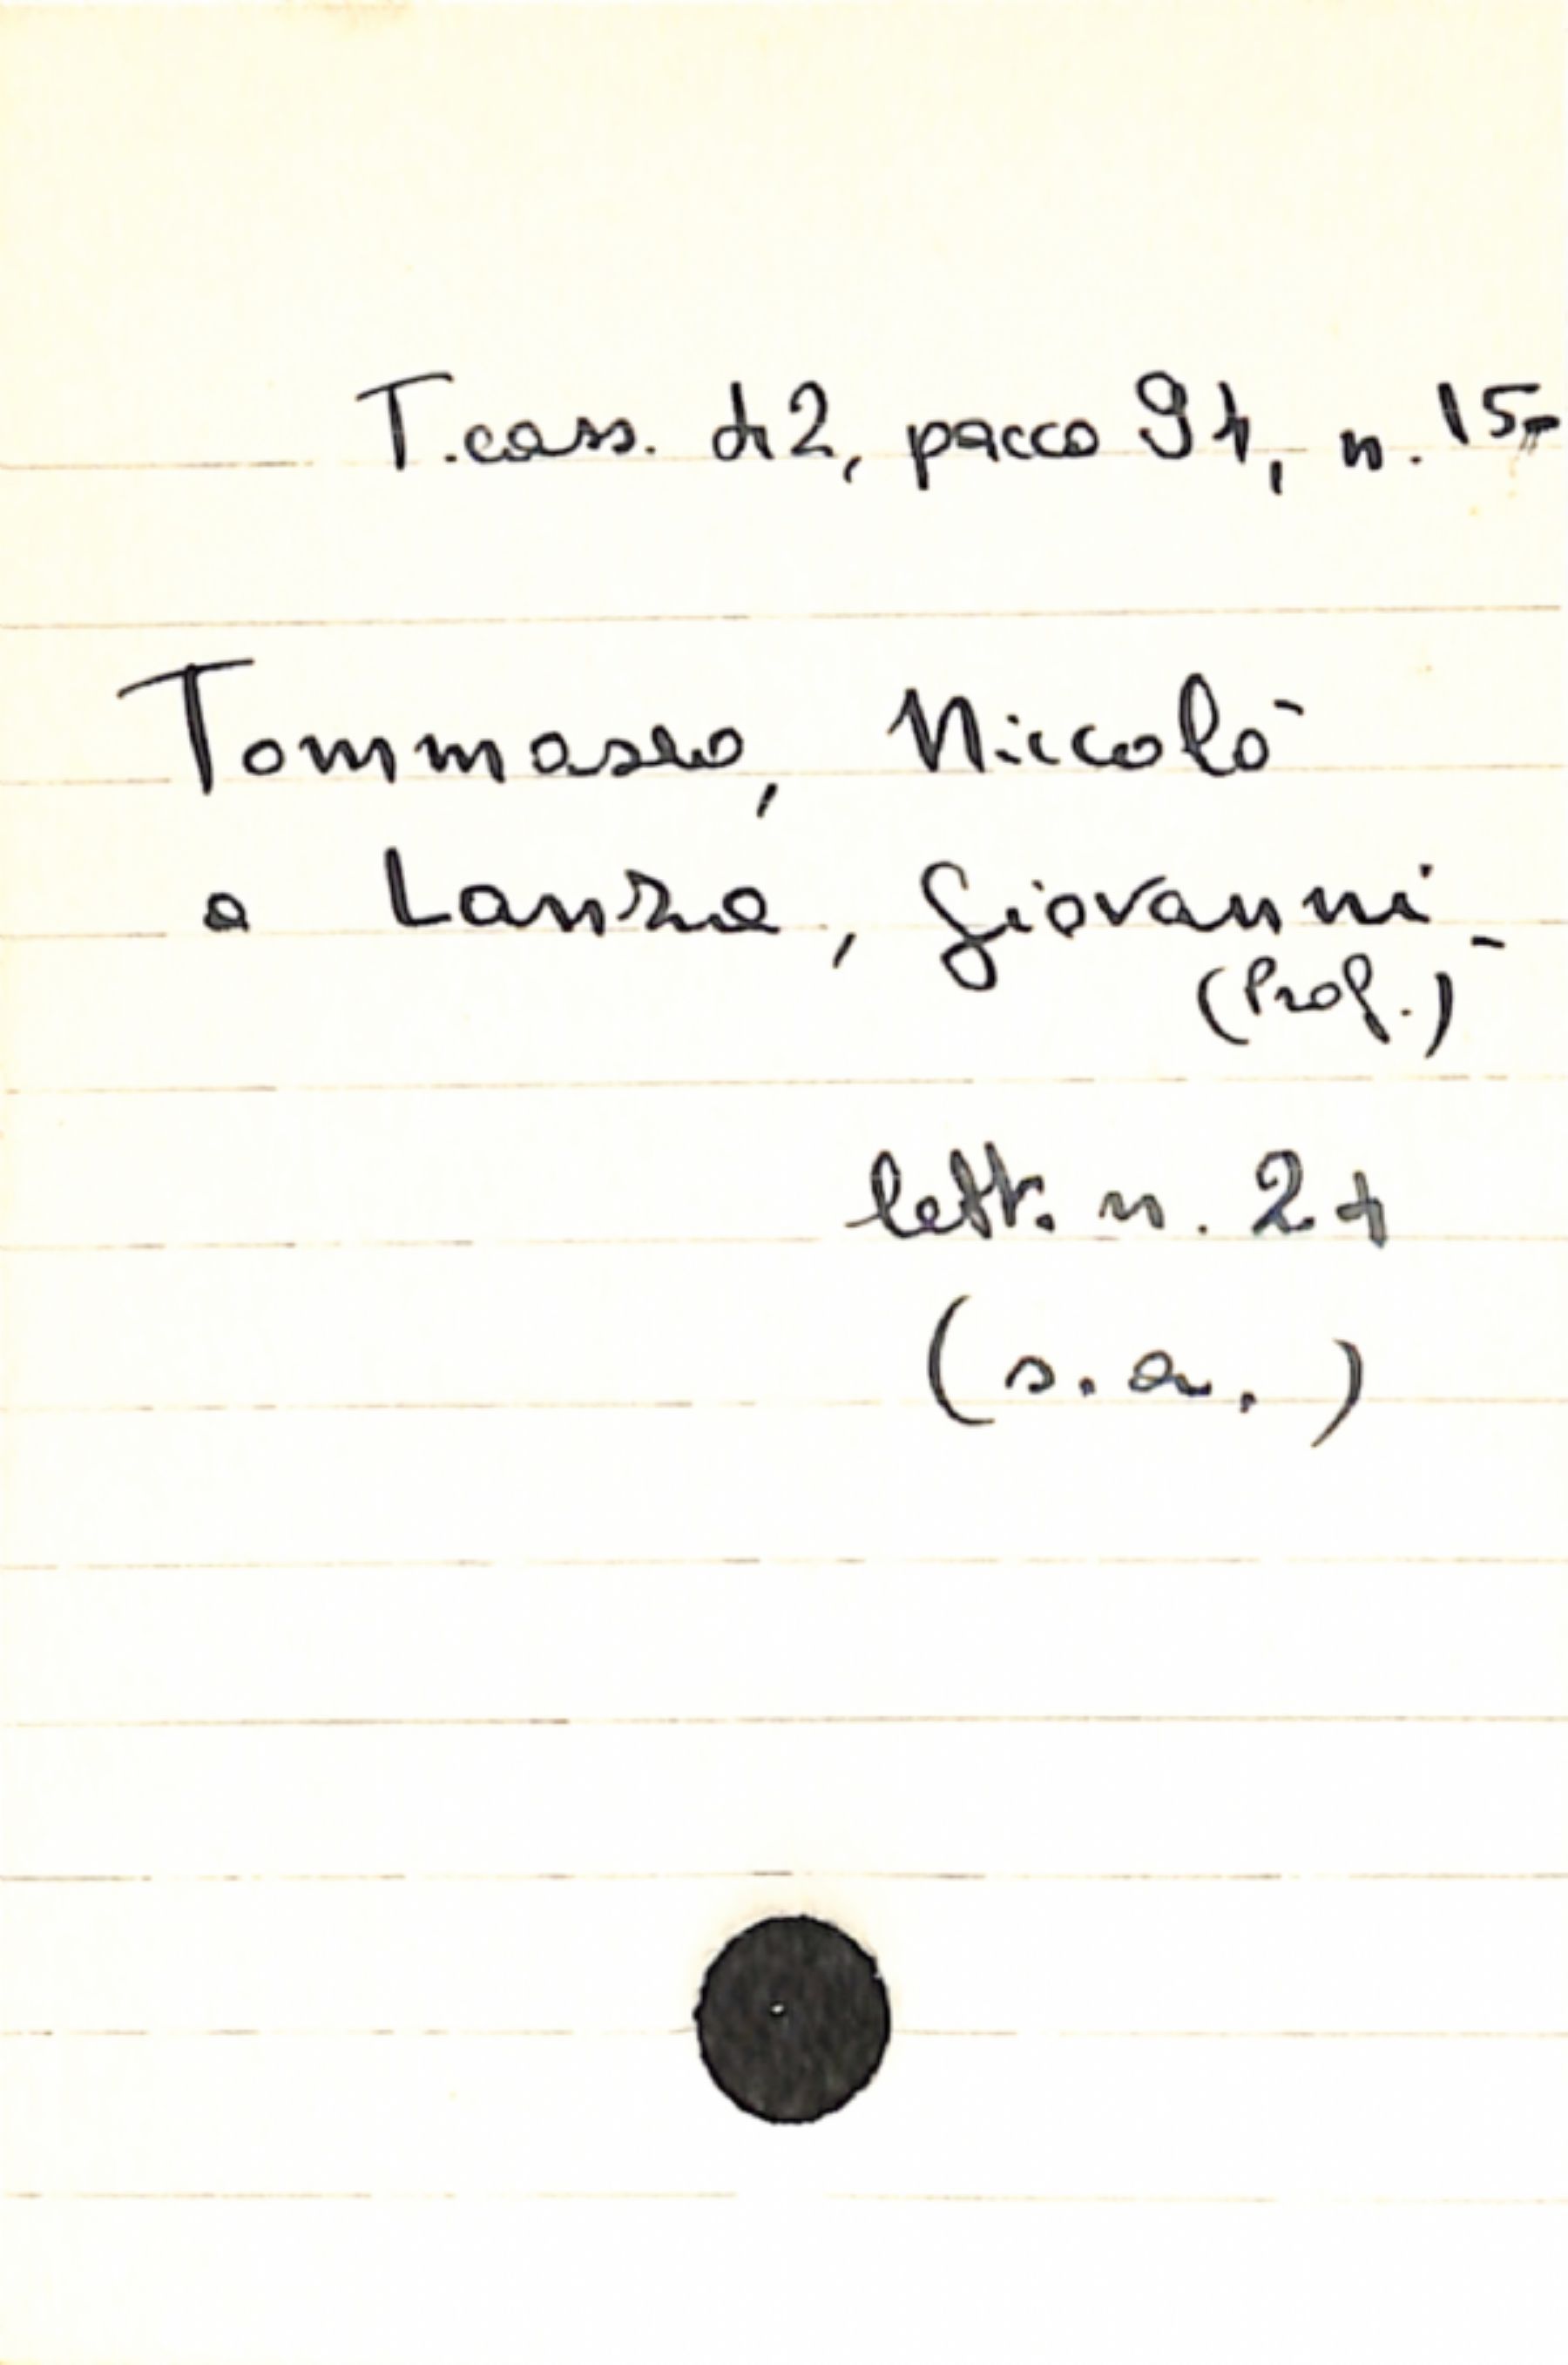 T.cass. pacco 94, n. 15-
Tommaseo, Niccolò
a Lanza, Giovanni -
(Prof.)
lett. n. 24
(s.a.)